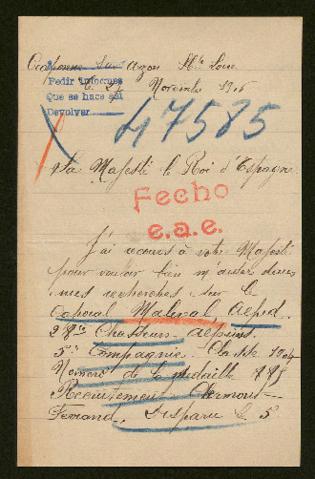 Craponne sur Arzon Hte Loire
Pedir informes
Le 27 Novembre 1916
Que se hace así
Devolver
47585
Sa Majesté le Roi d'Espagne
Fecho
e.a.e.
J'ai recours à votre Majesté
pour vouloir bien m'aider dans
mes recherches sur le
Caporal Maleval, Alfred.
28e Chasseurs Alpins.
5e Compagnie. Classe 1904
Numéro de la médaille 888
Recrutement Clermont-
Ferrand, Disparu le 5